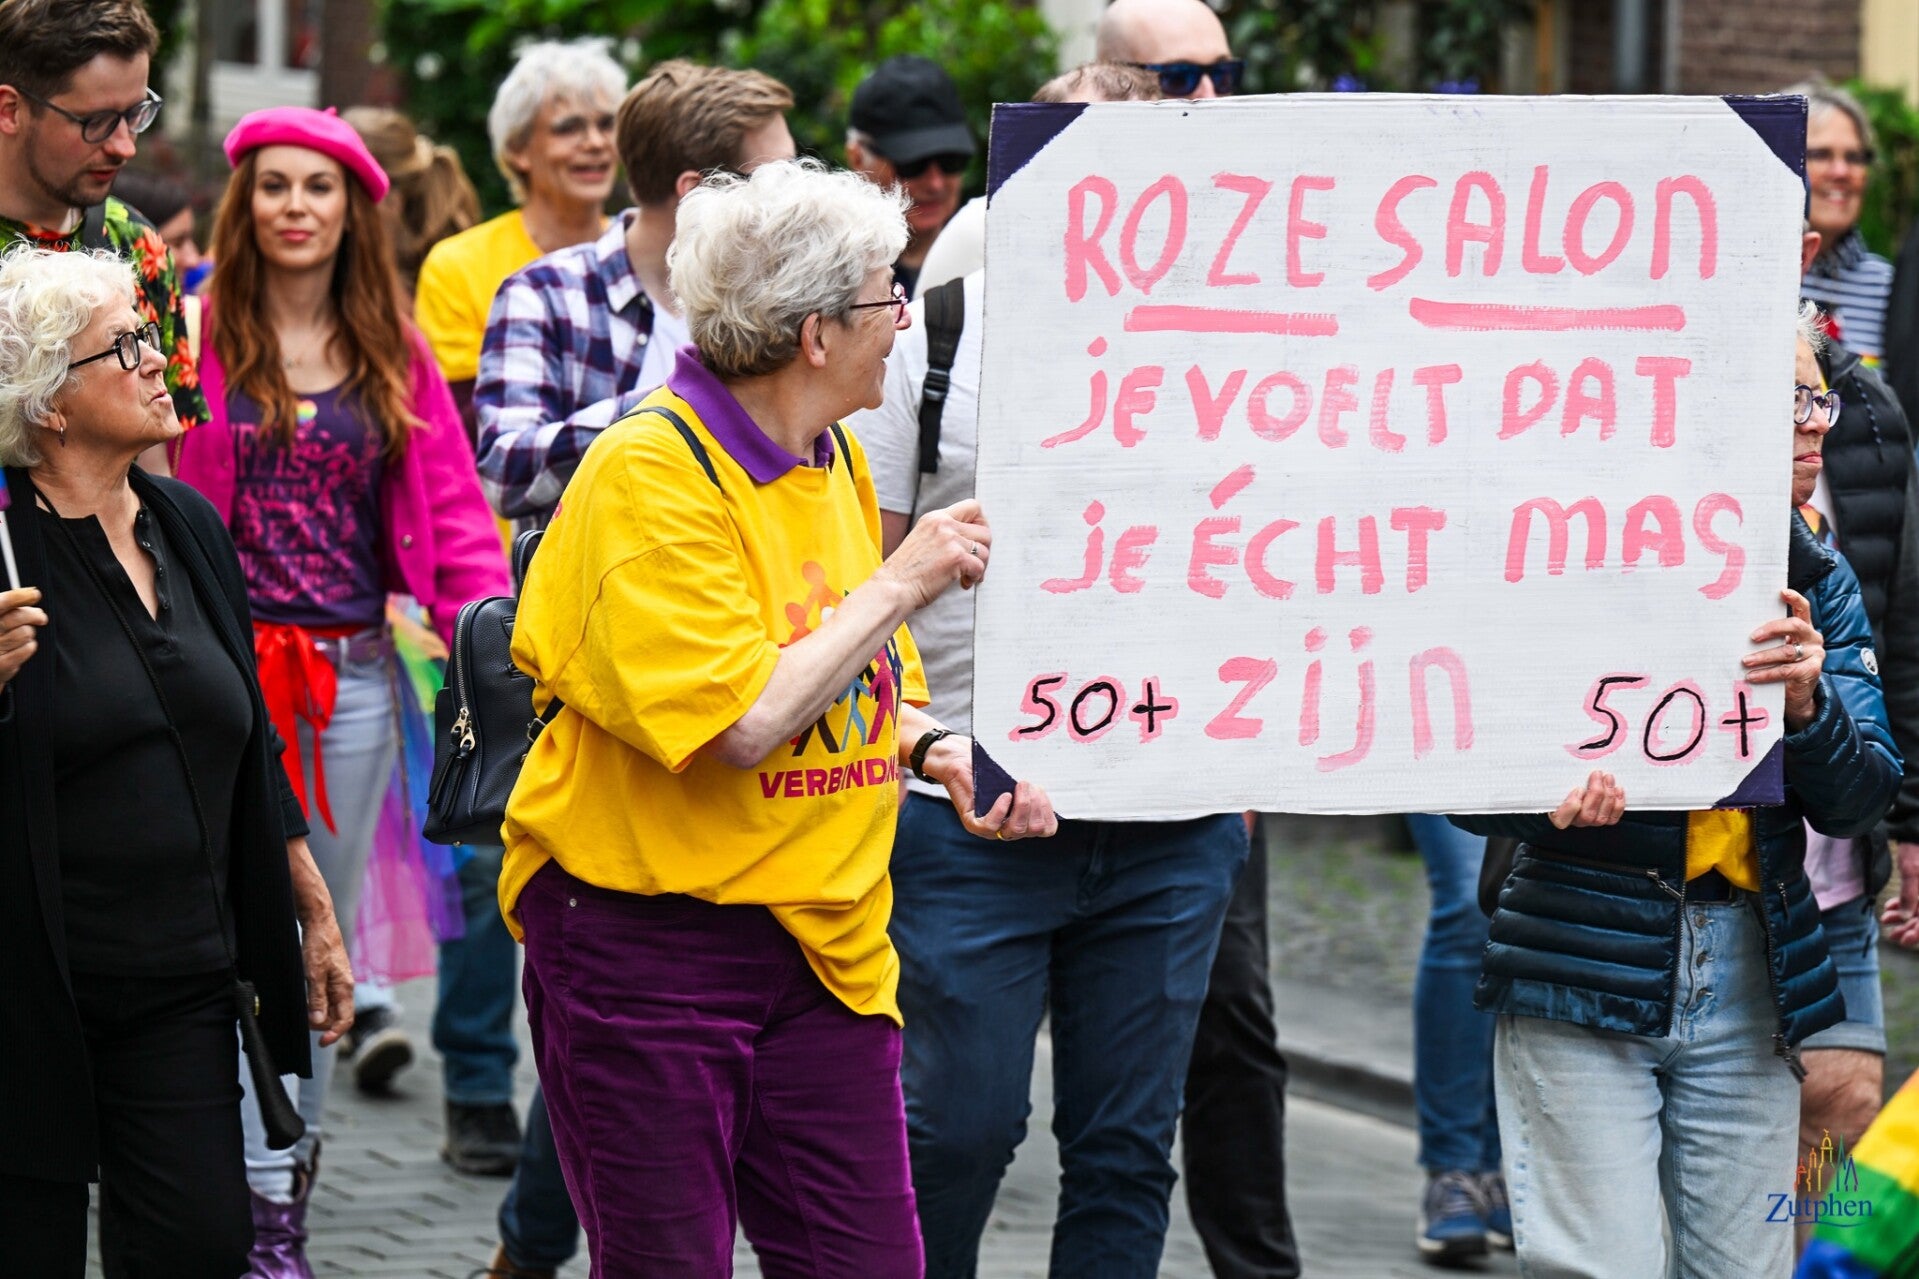 ROZE SALON
je VOELT DAT
je ÉCHT MAG
50+ zijn 50+
VERBINDING
Zutphen